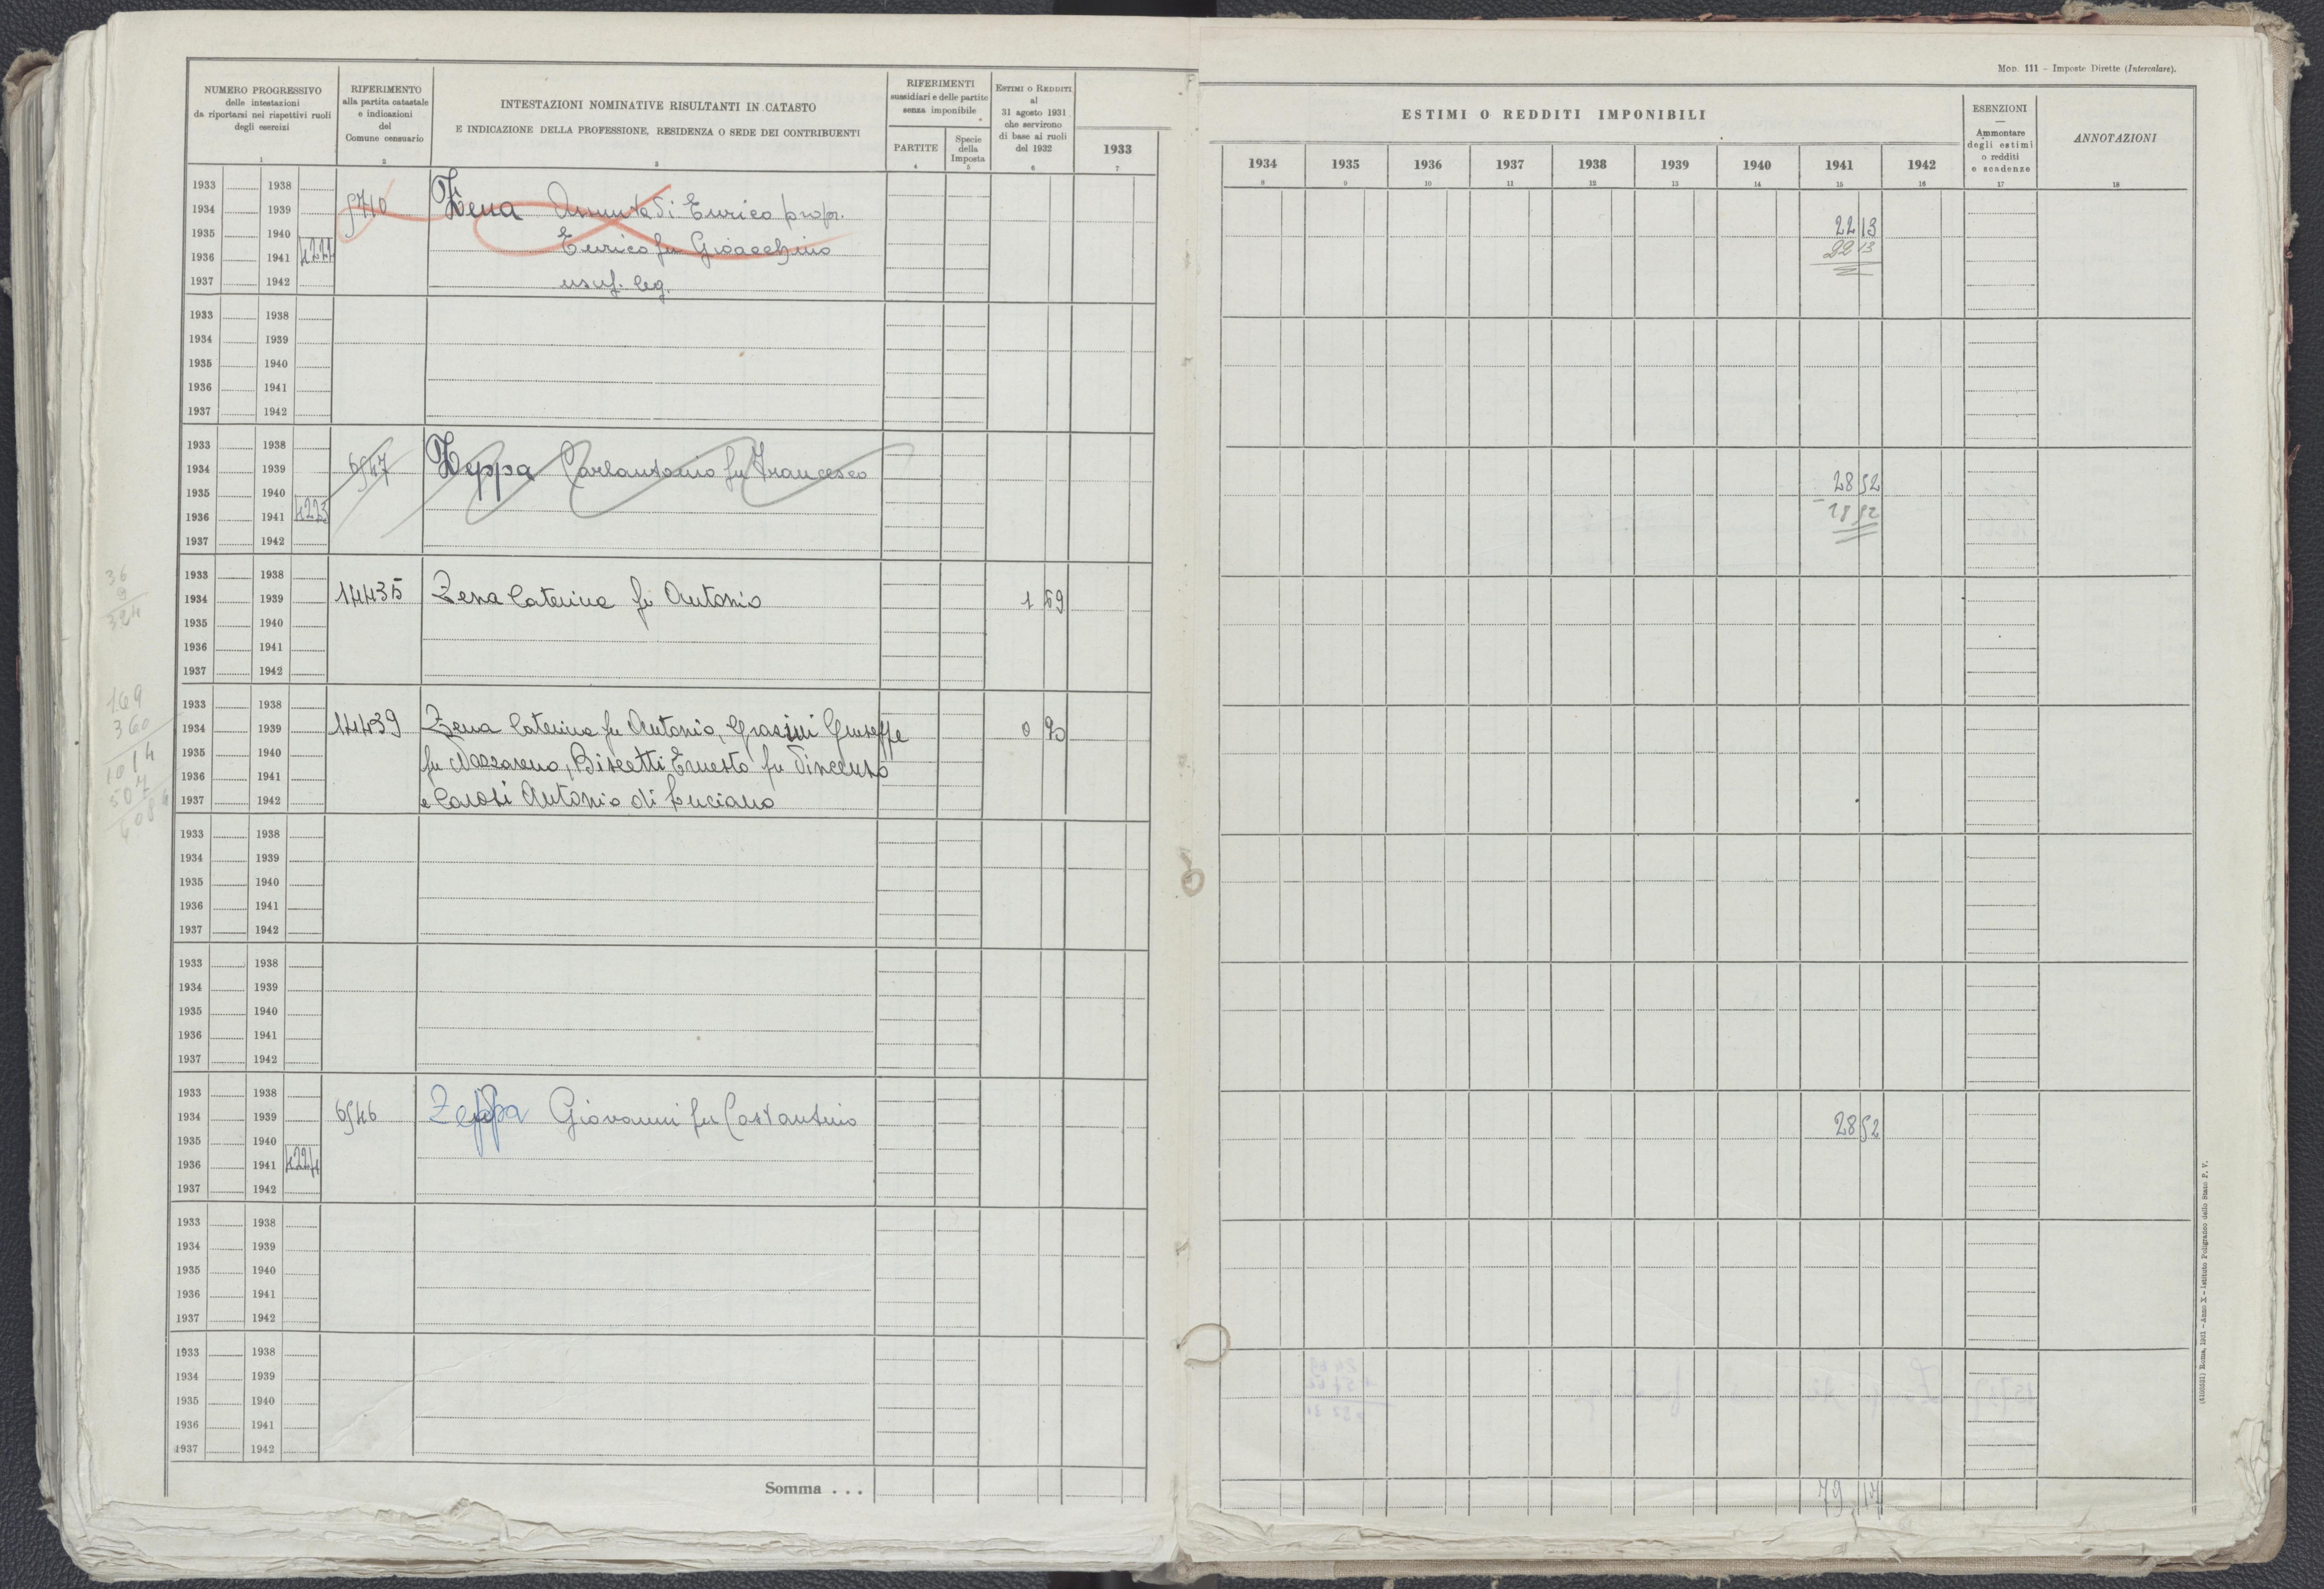 Mod. 111 - Imposte Dirette (Intercalare).
NUMERO PROGRESSIVO
delle intestazioni
da riportarsi nei rispettivi ruoli
degli esercizi
1
RIFERIMENTO
alla partita catastale
e indicazioni
del
Comune censuario
2
INTESTAZIONI NOMINATIVE RISULTANTI IN CATASTO
E INDICAZIONE DELLA PROFESSIONE, RESIDENZA O SEDE DEI CONTRIBUENTI
3
RIFERIMENTI
sussidiari e delle partite
senza imponibile
PARTITE
4
Specie
della
Imposta
5
ESTIMI O REDDITI
al
31 agosto 1931
che servirono
di base ai ruoli
del 1932
6
1933
7
ESTIMI O REDDITI IMPONIBILI
1934 1935 1936 1937 1938 1939 1940 1941 1942
8 9 10 11 12 13 14 15 16
ESENZIONI
—
Ammontare
degli estimi
o redditi
e scadenze
17
ANNOTAZIONI
18
1933 1938
1934 1939 5710 Zena Assunta di Enrico propr. 22 13
1935 1940 Enrico fu Gioacchino 22 13
1936 1941 4222
1937 1942 usuf. leg.
1933 1938
1934 1939
1935 1940
1936 1941
1937 1942
1933 1938
1934 1939 6547 Zeppa Carlantonio fu Francesco 28 52
1935 1940
1936 1941 4223 28 52
1937 1942
1933 1938
1934 1939 14435 Zena Caterina fu Antonio 1 69
1935 1940
1936 1941
1937 1942
36
9
324
1933 1938
1934 1939 14439 Zena Caterina fu Antonio, Grasini Giuseppe 0 90
1935 1940 fu Nazzareno, Biscetti Ernesto fu Vincenzo
1936 1941
1937 1942 e Carosi Antonio di Luciano
169
360
1014
507
1933 1938
1934 1939
1935 1940
1936 1941
1937 1942
1933 1938
1934 1939
1935 1940
1936 1941
1937 1942
1933 1938
1934 1939 6546 Zeppa Giovanni fu Costantino 28 52
1935 1940
1936 1941 4224
1937 1942
1933 1938
1934 1939
1935 1940
1936 1941
1937 1942
1933 1938
1934 1939
1935 1940
1936 1941
1937 1942
Somma . . . 79 17
Roma, 1931 - Anno X - Istituto Poligrafico dello Stato P. V.